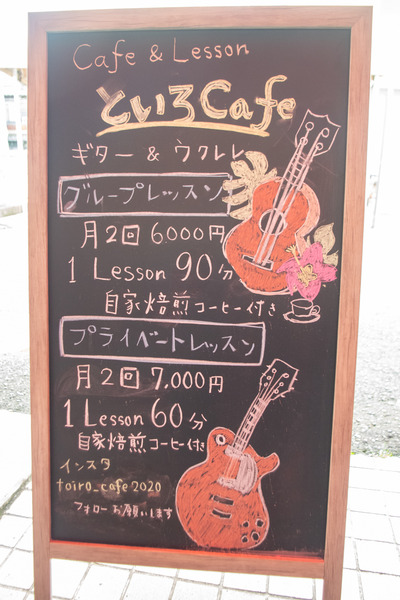 Cafe & Lesson
といろCafe
ギター & ウクレレ
グループレッスン
月2回 6,000円
1 Lesson 90分
自家焙煎コーヒー付き
プライベートレッスン
月2回 7,000円
1 Lesson 60分
自家焙煎コーヒー付き
インスタ
toiro_cafe2020
フォローお願いします